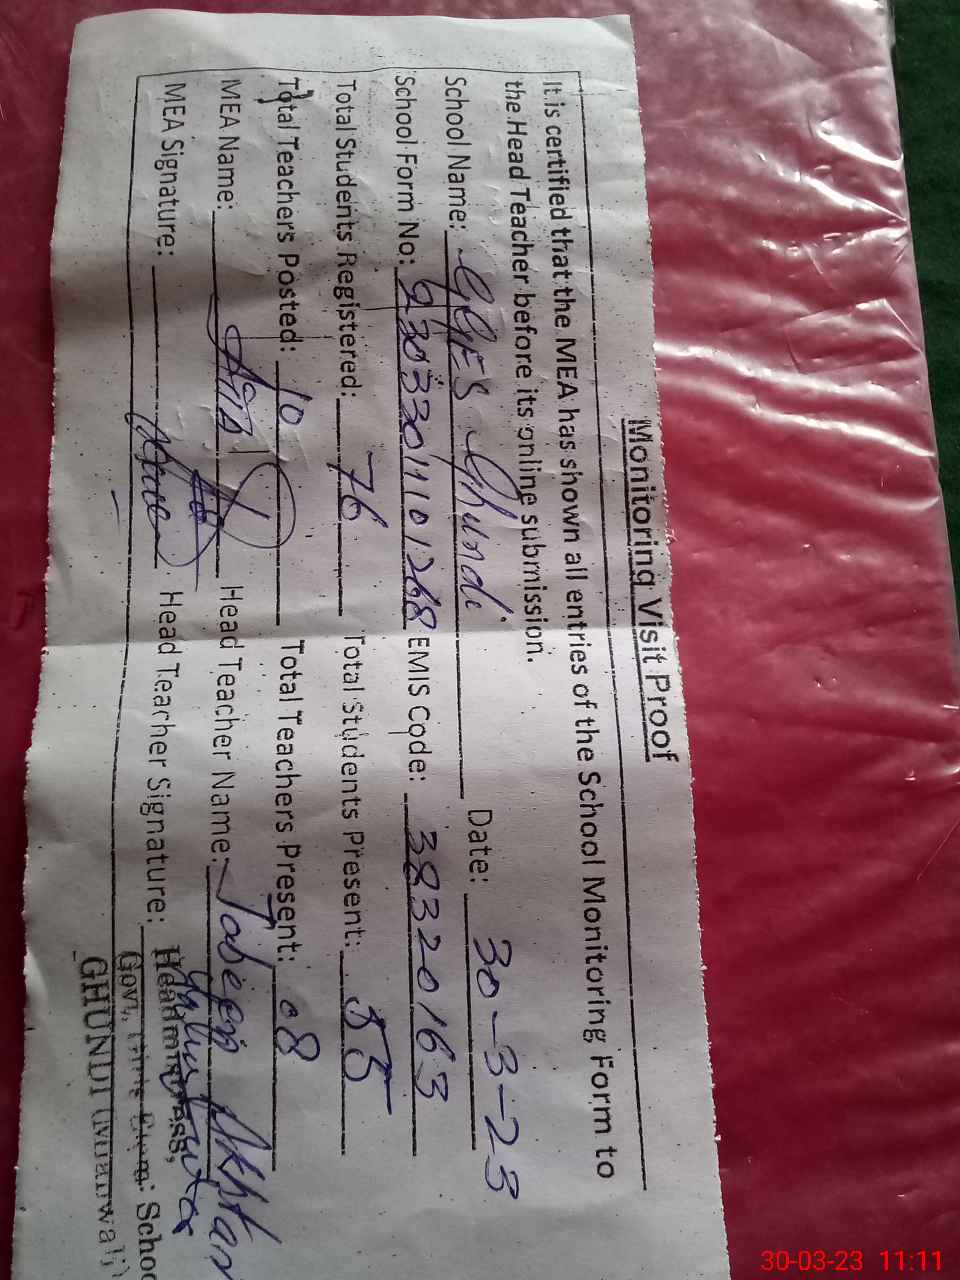 Monitoring Visit Proof
It is certified that the MEA has shown all entries of the School Monitoring Form to
the Head Teacher before its online submission.
School Name: GGES Ghundi Date: 30-3-23
School Form No: EMIS Code: 38320163
Total Students Registered: 76 Total Students Present: 55
Total Teachers Posted: 10 Total Teachers Present: 08
MEA Name: Head Teacher Name: Jabeen Akhtar
MEA Signature: Head Teacher Signature:
Headmistress,
Govt. Girls Elem: School
GHUNDI (Mianwali)
30-03-23 11:11